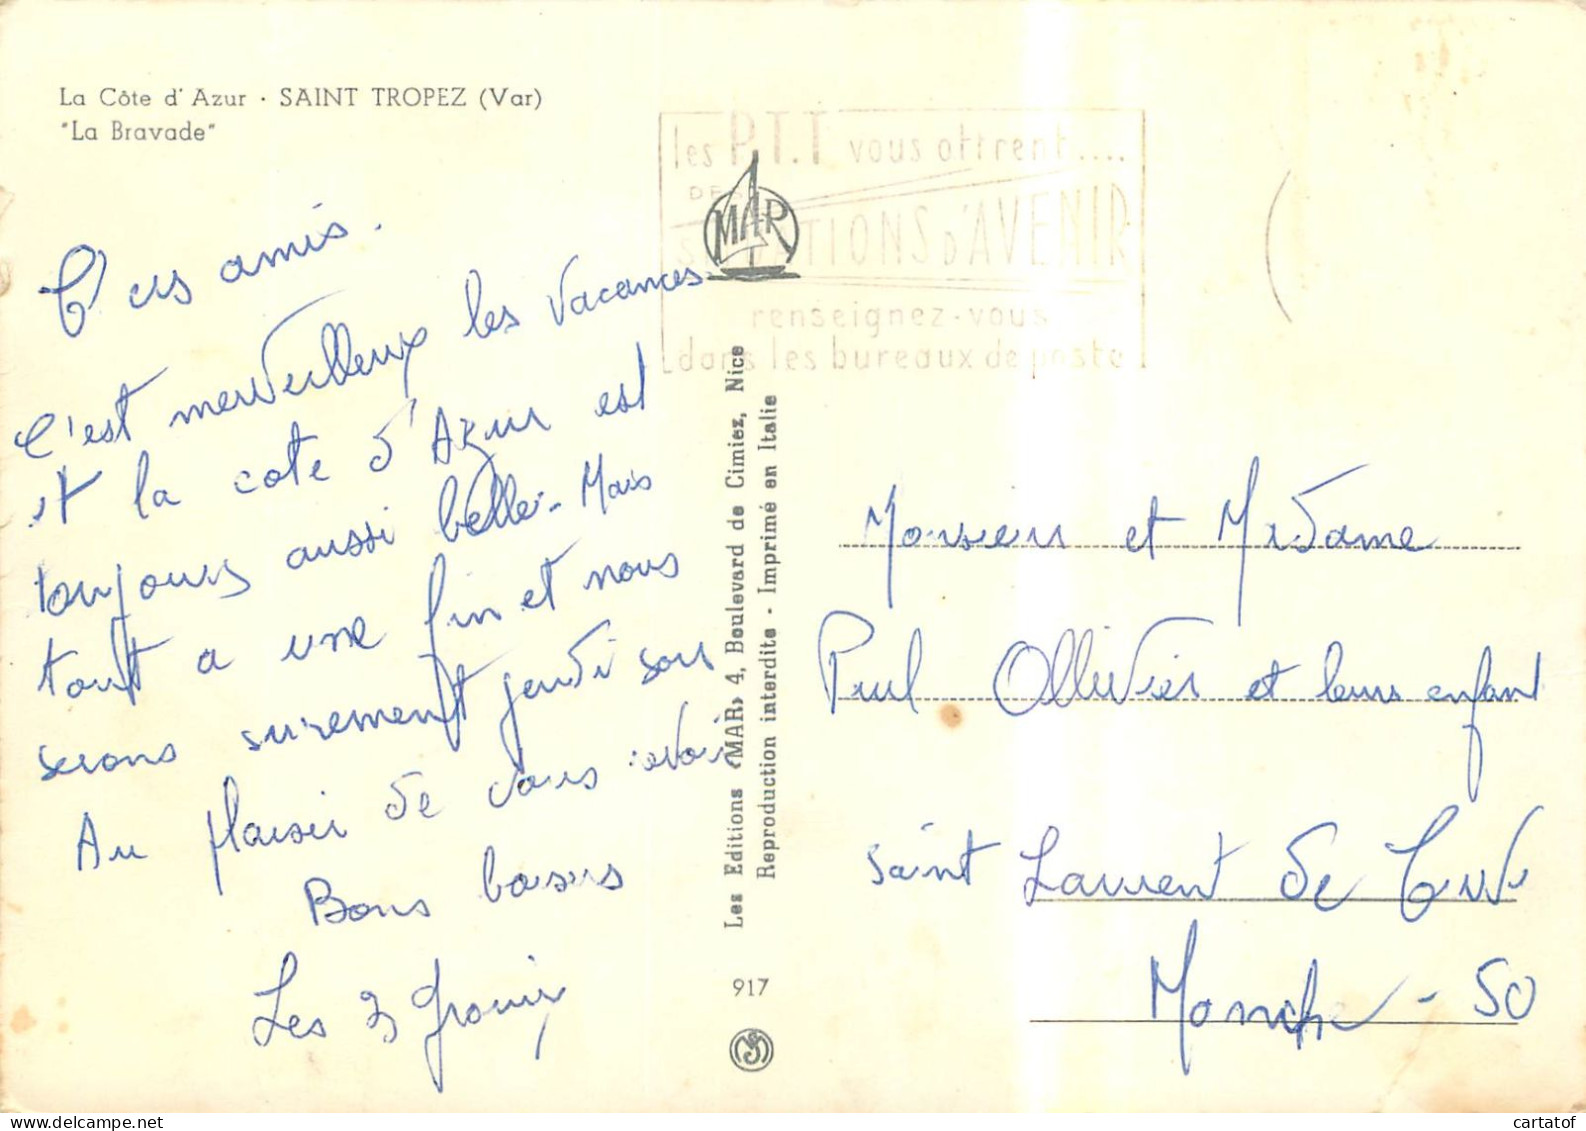 La Côte d'Azur · SAINT TROPEZ (Var)
"La Bravade"
les P.T.T vous offrent....
DES
SITUATIONS D'AVENIR
renseignez-vous
dans les bureaux de poste
MAR
amis.
C'est merveilleux les vacances
et la cote d'Azur est
toujours aussi belle - Mais
tout a une fin et nous
serons surement jeudi soir
Au plaisir de vous revoir
Bons baisers
Les 3
Les Editions «MAR» 4, Boulevard de Cimiez, Nice
Reproduction interdite - Imprimé en Italie
917
Monsieur et Madame
Paul Ollivier et leurs enfant
Saint Laurent de Cuves
Manche - 50
cartatof